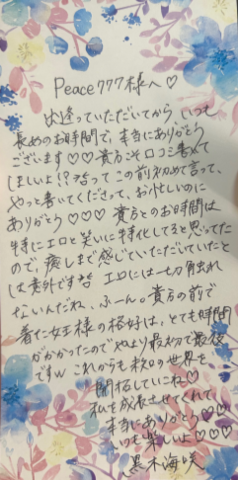 Peace777様へ♡
出逢っていただいてから、いつも
長めのお時間で、本当にありがとう
ございます♡♡貴方そ口コミ書んて
ほしいよ!?と言って この前初めて言って、
やっと書いてくださって、お忙しいのに
ありがとう♡♡♡ 貴方とのお時間は
特にエロと笑いに特化してると思ってた
ので、癒しまで感じていただいていたと
は意外です エロには一切触れ
ないんだね、ふーん。貴方の前で
着た女王様の格好は、とても時間
がかかったのでやはり最初で最後
ですw これからも 世界を
開拓していこね♡
私を成長させてくれて
本当にありがとう♡♡
いつも楽しいよ♡♡♡
黒木海咲